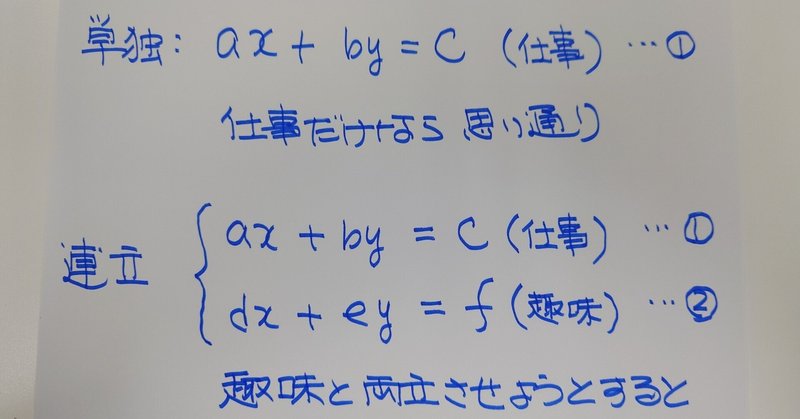 単独: ax + by = C (仕事) …①
仕事だけなら 思い通り
連立 { ax + by = C (仕事) …①
dx + ey = f (趣味) …②
趣味と両立させようとすると